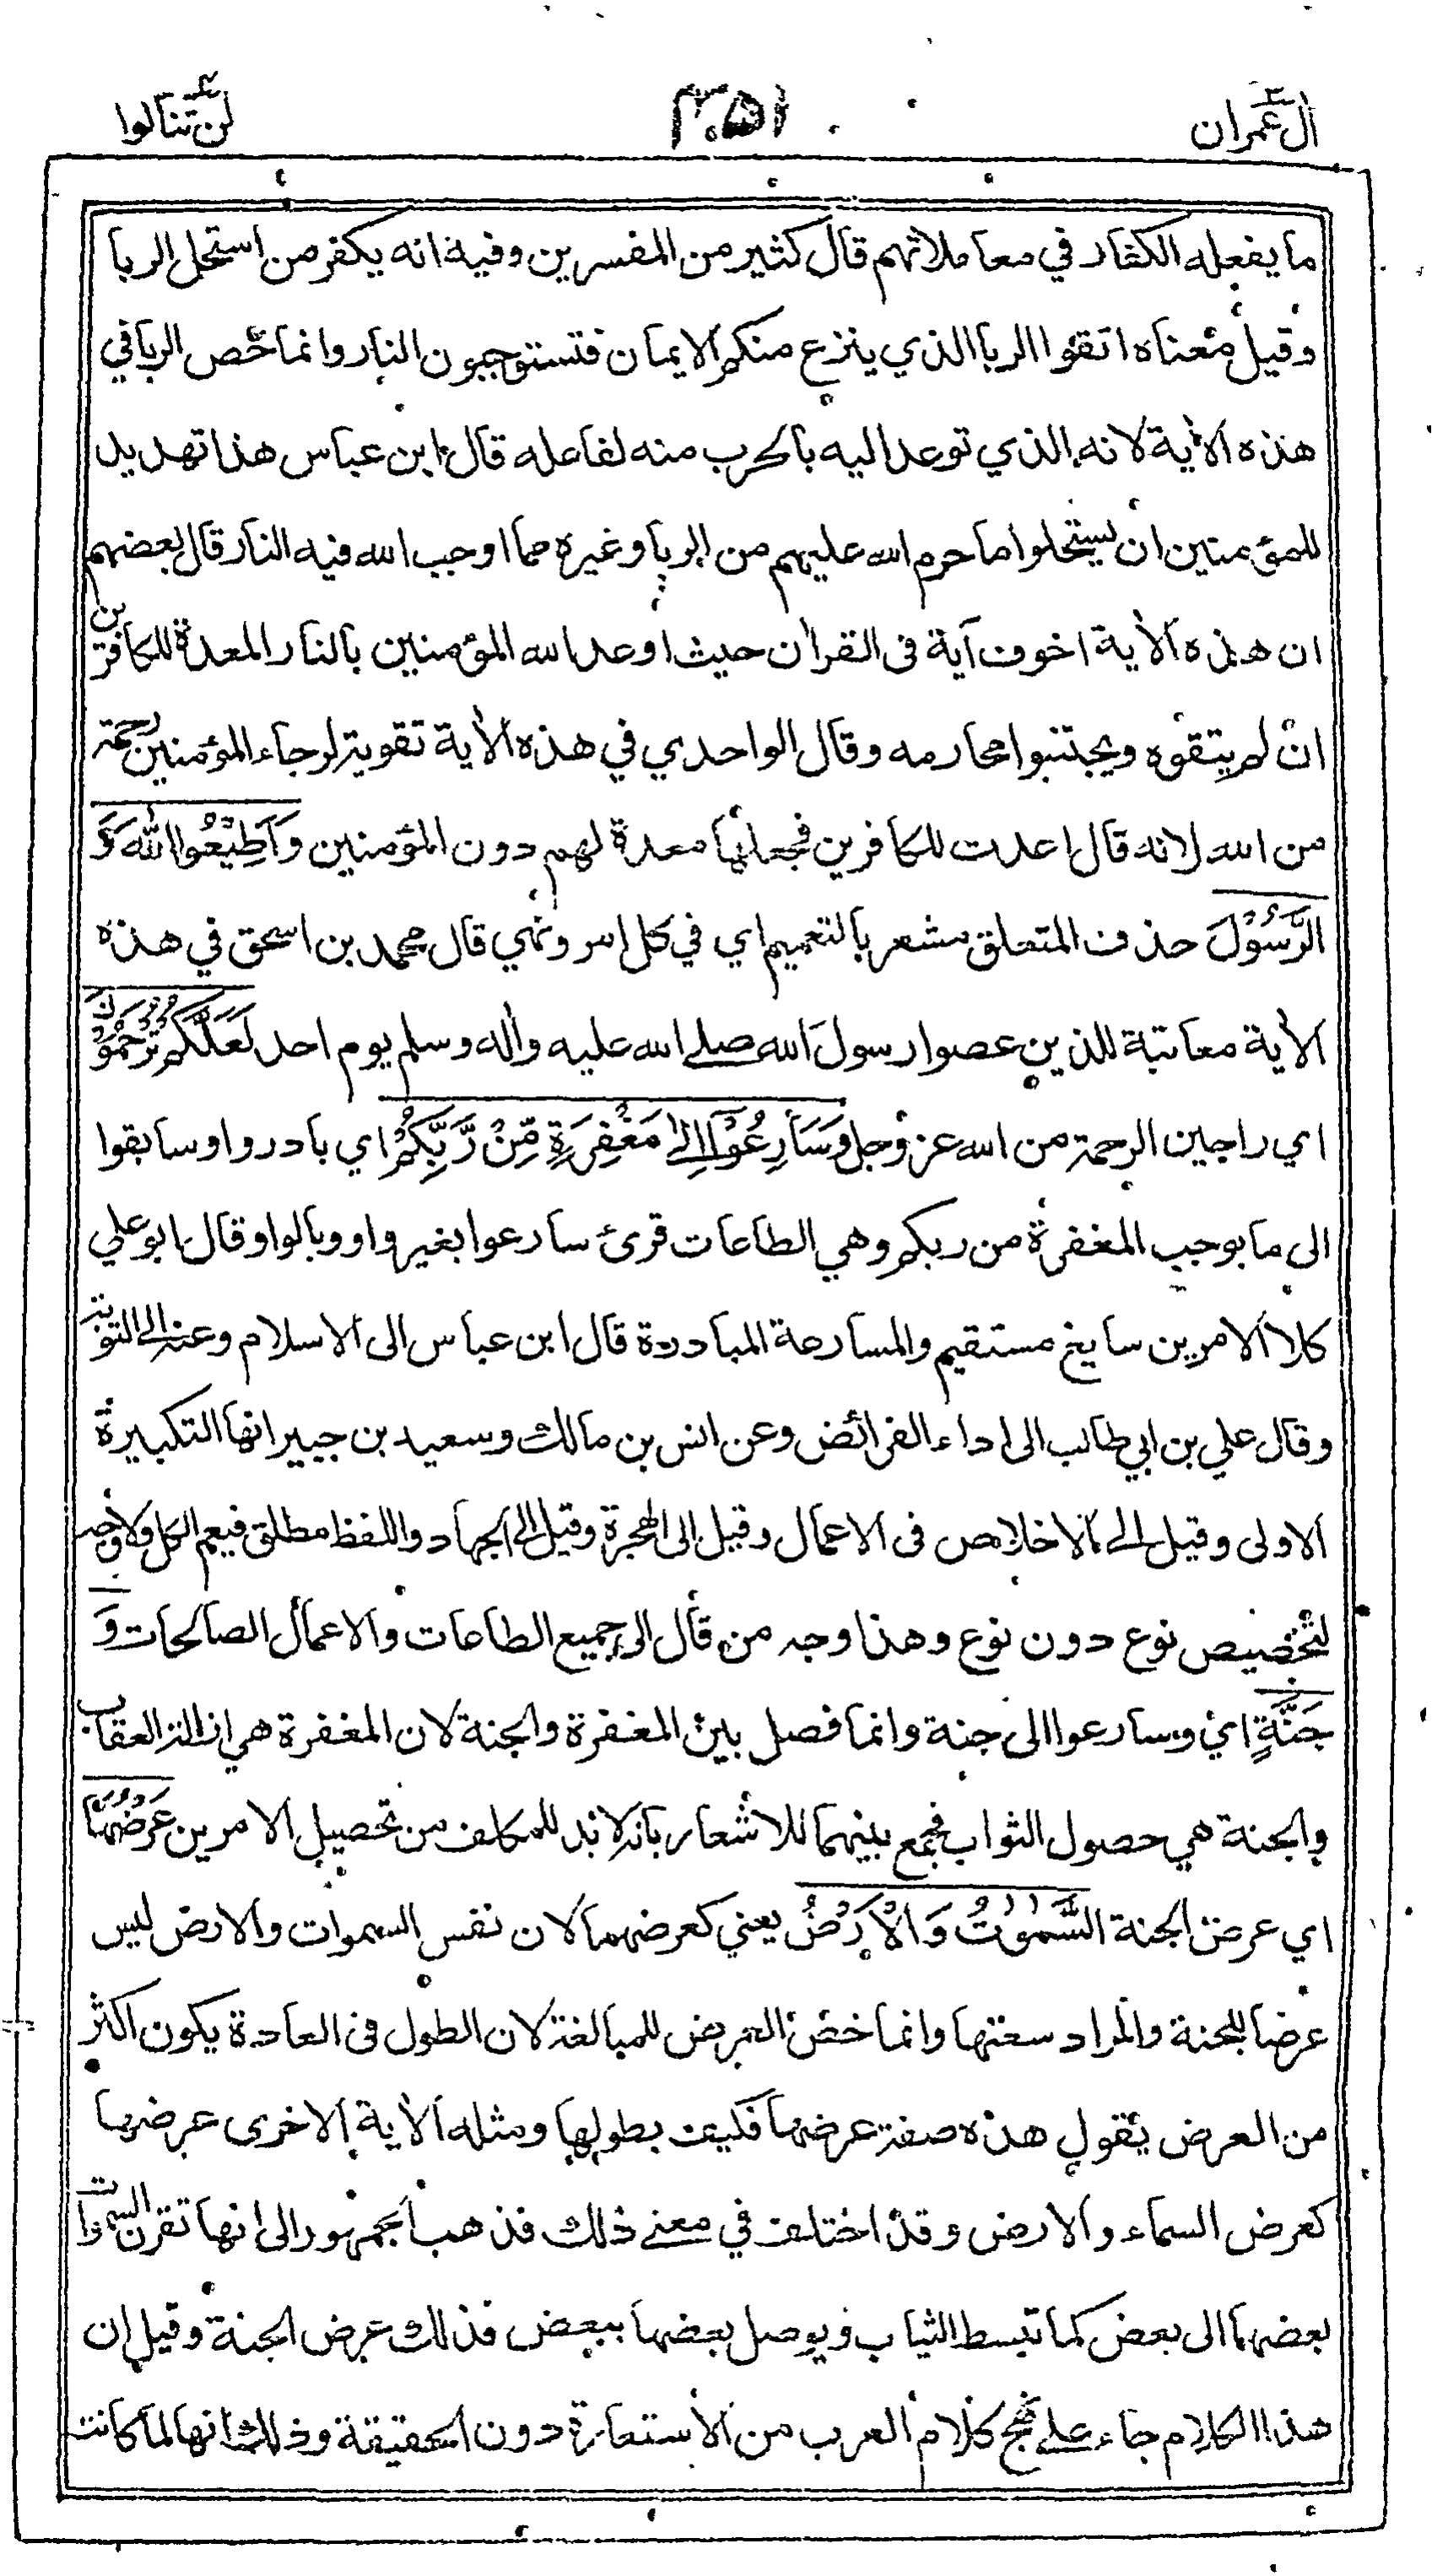 اٰل عمران ٣
٣٥١
لن تنالوا ٤
ما يفعله الكفار في معاملاتهم قال كثير من المفسرين وفيه انه يكفر من استحل الربا
وقيل معناه اتقوا الربا الذي ينزع منكم الايمان فتستوجبون النار وانما خص الربا في
هذه الاٰية لانه الذي توعد اليه بالحرب منه لفاعله قال ابن عباس هذا تهديد
للمؤمنين ان يستحلوا ما حرم الله عليهم من الربا وغيره مما اوجب الله فيه النار قال بعضهم
ان هذه الاٰية اخوف آية فى القراٰن حيث اوعد الله المؤمنين بالنار المعدة للكافرين
ان لم يتقوه ويجتنبوا محارمه وقال الواحدي في هذه الاٰية تقوية لرجاء المؤمنين رحمة
من الله لانه قال اعدت للكافرين فجعلها معدة لهم دون المؤمنين وَاَطِيْعُوا اللّٰهَ وَ
الرَّسُوْلَ حذف المتعلق مشعر بالتعميم اي في كل امر ونهي قال محمد بن اسحق في هذه
الاٰية معاتبة للذين عصوا رسول الله صلے الله عليه واٰله وسلم يوم احد لَعَلَّكُمْ تُرْحَمُوْنَ
اي راجين الرحمة من الله عز وجل وَسَارِعُوْٓا اِلٰى مَغْفِرَةٍ مِّنْ رَّبِّكُمْ اي بادروا وسابقوا
الى ما يوجب المغفرة من ربكم وهي الطاعات قرئ سارعوا بغير واو وبالواو قال ابو علي
كلا الامرين سايغ مستقيم والمسارعة المبادرة قال ابن عباس الى الاسلام وعنه الى التوبة
وقال علي بن ابي طالب الى اداء الفرائض وعن انس بن مالك وسعيد بن جبير انها التكبيرة
الاولى وقيل الى الاخلاص فى الاعمال وقيل الى الهجرة وقيل الى الجهاد واللفظ مطلق فيعم الكل ولا وجه
لتخصيص نوع دون نوع وهذا وجه من قال الى جميع الطاعات والاعمال الصالحات وَ
جَنَّةٍ اي وسارعوا الى جنة وانما فصل بين المغفرة والجنة لان المغفرة هي ازالة العقاب
والجنة هي حصول الثواب فجمع بينهما للاشعار بانه لابد للمكلف من تحصيل الامرين عَرْضُهَا
اي عرض الجنة السَّمٰوٰتُ وَالْاَرْضُ يعني كعرضهما لان نفس السموات والارض ليس
عرضا للجنة والمراد سعتها وانما خص العرض للمبالغة لان الطول فى العادة يكون اكثر
من العرض يقول هذه صفة عرضها فكيف بطولها ومثله الاٰية الاخرى عرضها
كعرض السماء والارض وقد اختلف في معنے ذلك فذهب الجمهور الى انها تقرن السموات
بعضها الى بعض كما تبسط الثياب ويوصل بعضها ببعض فذلك عرض الجنة وقيل ان
هذا الكلام جاء علے نهج كلام العرب من الاستعارة دون الحقيقة وذلك انها لما كانت